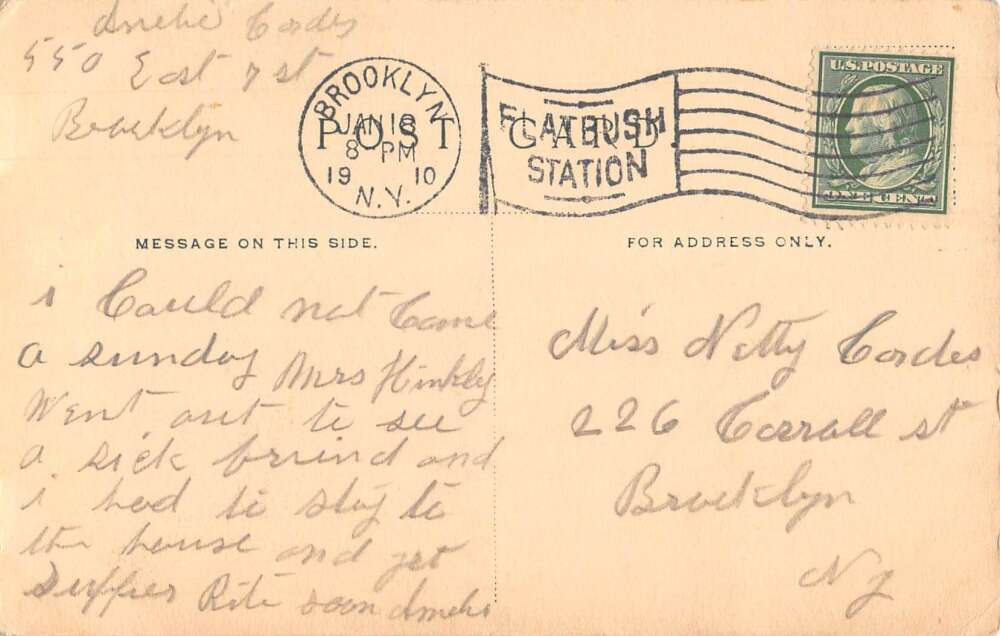 Amelie Cordes
550 East 7 st
Brocklyn
BROOKLYN
JAN 18
8 - PM
19 10
N.Y.
POST CARD.
FLATBUSH
STATION
U.S. POSTAGE
ONE CENT
MESSAGE ON THIS SIDE.
FOR ADDRESS ONLY.
i Could not Come
a sunday Mrs Hinkly
Went out to see
a sick friind and
i had to stay to
the house and get
Supper Rite soon
Miss Netty Cordes
226 Carrall st
Brocklyn
N y